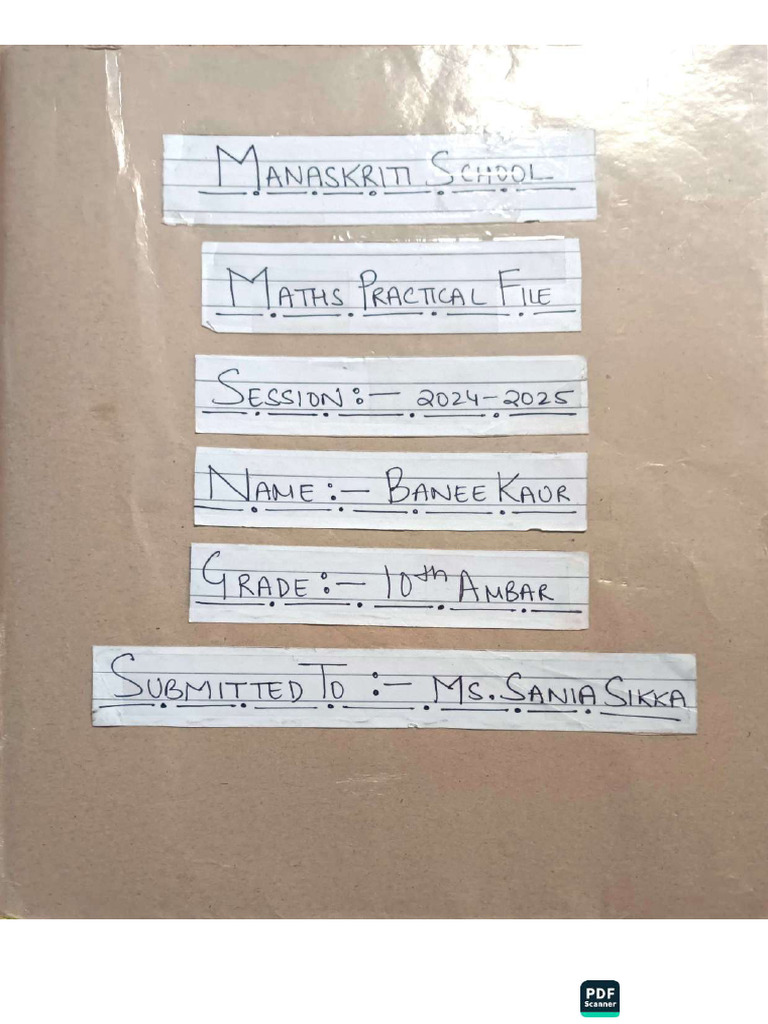 MANASKRITI SCHOOL
MATHS PRACTICAL FILE
SESSION:- 2024-2025
NAME:- BANEE KAUR
GRADE:- 10th AMBAR
SUBMITTED TO:- MS. SANIA SIKKA
PDF
Scanner